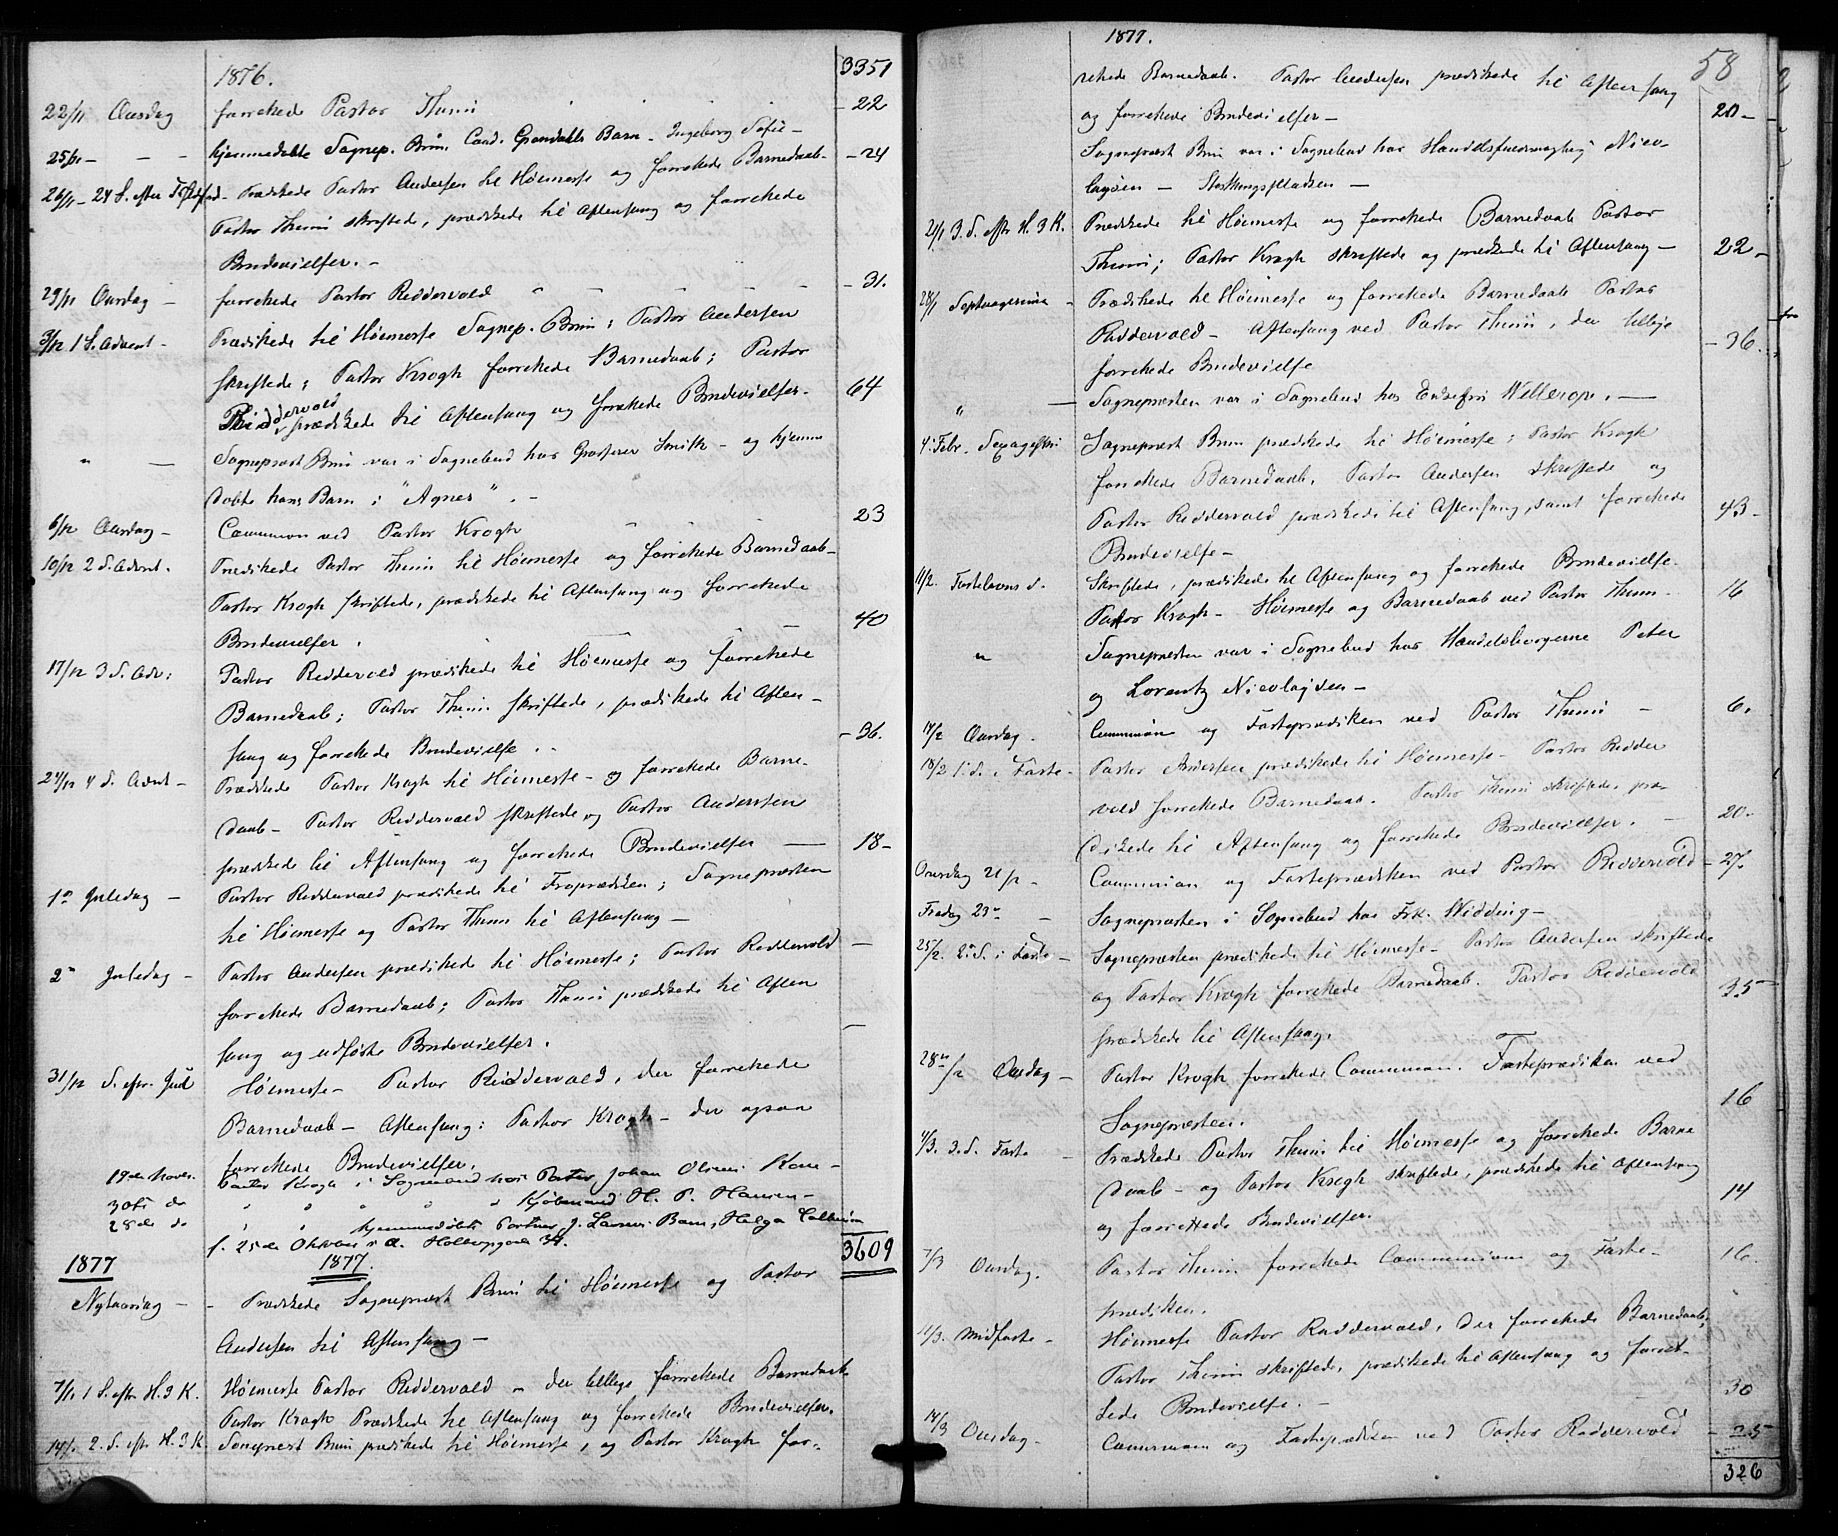 1876. 3351
22/11 Onsdag forrettede Pastor Thimi - 22
25/11 - - - hjemmedøbte Sognep. Brun Cand. Grøndahls Barn - Ingeborg Sofie -
26/11 - 24 S. efter Prædikede Pastor Andersen til Høimesse og forrettede Barnedaab - - 24
Pastor Thimi skriftede, prædikede til Aftensang og forrettede
Brudevielser. -
29/11 Onsdag - forrettede Pastor Riddervold - 31.
3/12 1 S. Advent - Prædikede til Høimesse Sognep. Brun; Pastor Andersen
skriftede; Pastor Krogh forrettede Barnedaab; Pastor
Riddervold prædikede til Aftensang og forrettede Brudevielser. 64
" — Sognepræst Brun var i Sognebud hos Smith - og hjemme
døbte hans Barn: "Agnes". -
6/12 Onsdag - Communion ved Pastor Krogh 23
10/12 2 S. Advent. Prædikede Pastor Thimi til Høimesse og forrettede Barnedaab -
Pastor Krogh skriftede, prædikede til Aftensang og forrettede
Brudevielser. 40
17/12 3 S. Adv: Pastor Riddervold prædikede til Høimesse og forrettede
Barnedaab; Pastor Thimi skriftede, prædikede til Aften -
sang og forrettede Brudevielse. - - 36.
24/12 4 S. Advent - Prædikede Pastor Krogh til Høimesse - og forrettede Barne -
daab - Pastor Riddervold skriftede og Pastor Andersen
prædikede til Aftensang og forrettede Brudevielser — 18 -
1ste Juledag - Pastor Riddervold prædikede til Froprædiken; Sognepræsten
til Høimesse og Pastor Thimi til Aftensang -
2den Juledag - Pastor Andersen prædikede til Høimesse; Pastor Riddervold —
forrettede Barnedaab; Pastor Thimi prædikede til Aften
sang og udførte Brudevielser. —
31/12 S. eftr. Jul Høimesse - Pastor Riddervold, der forrettede
Barnedaab - Aftensang: Pastor Krogh - der ogsaa
forrettede Brudevielser.
19de Novbr. Pastor Krogh i Sognebud hos Johan Olsens Kone -
30te do " " " " Kjøbmand H. P. Hansen -
28de do " " hjemmedøbte J. Larsens Barn, Helga
f. 25de Oktober s. a. 34.
3609
1877 1877.
Nytaarsdag - - Prædikede Sognepræst Brun til Høimesse og Pastor
Andersen til Aftensang -
7/1 1 S. eftr H. 3 K. Høimesse Pastor Riddervold - der tillige forrettede Barnedaab
Pastor Krogh Prædikede til Aftensang og forrettede Brudevielser.
14/1 2. S. eftr H. 3 K. Sognepræst Brun prædikede til Høimesse, og Pastor Krogh for-
1877. 58
rettede Barnedaab. Pastor Andersen prædikede til Aftensang
og forrettede Brudevielser - 20 -
Sognepræst Brun var i Sognebud hos Handelsfuldmægtig Nico-
laysen —
21/1 3. S. eftr H. 3 K. Prædikede til Høimesse og forrettede Barnedaab Pastor
Thimi; Pastor Krogh skriftede og prædikede til Aftensang - 22 -
28/1 Septuagesima - Prædikede til Høimesse og forrettede Barnedaab Pastor
Riddervold - Aftensang ved Pastor Thimi, der tillige
forrettede Brudevielse - 36.
" — Sognepræsten var i Sognebud hos Enkefru Wellerop. —
4. Febr. Sexagesima Sognepræst Brun prædikede til Høimesse; Pastor Krogh
forrettede Barnedaab. Pastor Andersen skriftede og
Pastor Riddervold prædikede til Aftensang, samt forrettede
Brudevielse - 43 -
11/2. Fastelavns S. Skriftede, prædikede til Aftensang og forrettede Brudevielse
Pastor Krogh - Høimesse og Barnedaab ved Pastor Thimi - 16
" Sognepræsten var i Sognebud hos Handelsborgerne Peter
og Lorentz Nicolaysen -
14/2 Onsdag. Communion og Fasteprædiken ved Pastor Thimi - 6.
18/2 1. S. i Faste - Pastor Andersen prædikede til Høimesse - Pastor Ridder
vold forrettede Barnedaab. Pastor Thimi skriftede, præ-
dikede til Aftensang og forrettede Brudevielser. — 20.
Onsdag 21/2 - Communion og Fasteprædiken ved Pastor Riddervold - 27.
Fredag 23de - Sognepræsten i Sognebud hos Frk. Widding -
25/2. 2. S. i Faste - Sognepræsten prædikede til Høimesse - Pastor Andersen skriftede
og Pastor Krogh forrettede Barnedaab. Pastor Riddervold
prædikede til Aftensang. 35
28de/2 Onsdag - Pastor Krogh forrettede Communion. Fasteprædiken ved
Sognepræsten. 16
4/3. 3. S. Faste - Prædikede Pastor Thimi til Høimesse og forrettede Barne
daab - og Pastor Krogh skriftede, prædikede til Aftensang
og forrettede Brudevielser. 14
7/3 Onsdag. Pastor Thimi forrettede Communion og Faste-
prædiken. 16.
11/3. Midfaste - Høimesse Pastor Riddervold, der forrettede Barnedaab,
Pastor Thimi skriftede, prædikede til Aftensang og forret-
tede Brudevielse. - 30
14/3 Onsdag - Communion og Fasteprædiken ved Pastor Riddervold - 25
326